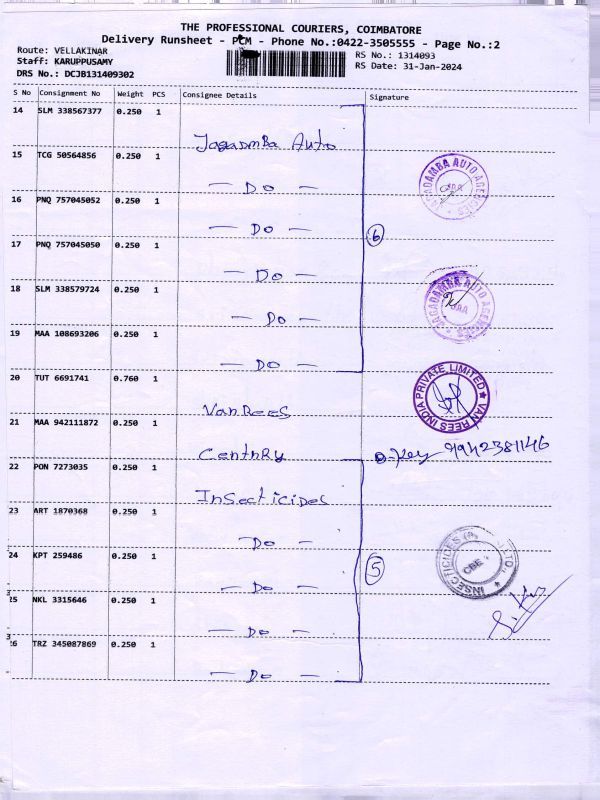 THE PROFESSIONAL COURIERS, COIMBATORE
Delivery Runsheet - PCM - Phone No.:0422-3505555 - Page No.:2
Route: VELLAKINAR
Staff: KARUPPUSAMY
DRS No.: DCJB131409302
RS No.: 1314093
RS Date: 31-Jan-2024
S No Consignment No Weight PCS Consignee Details Signature
14 SLM 338567377 0.250 1 Jagadmba Auto
15 TCG 50564856 0.250 1 — Do —
JAGADAMBA AUTO AGENCIES
16 PNQ 757045052 0.250 1 — Do —
6
17 PNQ 757045050 0.250 1 — Do —
18 SLM 338579724 0.250 1 — Do —
JAGADAMBA AUTO AGENCIES
19 MAA 108693206 0.250 1 — Do —
20 TUT 6691741 0.760 1 VanRees
VAN REES INDIA PRIVATE LIMITED
21 MAA 942111872 0.250 1 Centnry
9942381146
22 PON 7273035 0.250 1 Insecticides
23 ART 1870368 0.250 1 — Do —
24 KPT 259486 0.250 1 — Do —
5
INSECTICIDES
CBE
25 NKL 3315646 0.250 1 — Do —
26 TRZ 345087869 0.250 1 — Do —